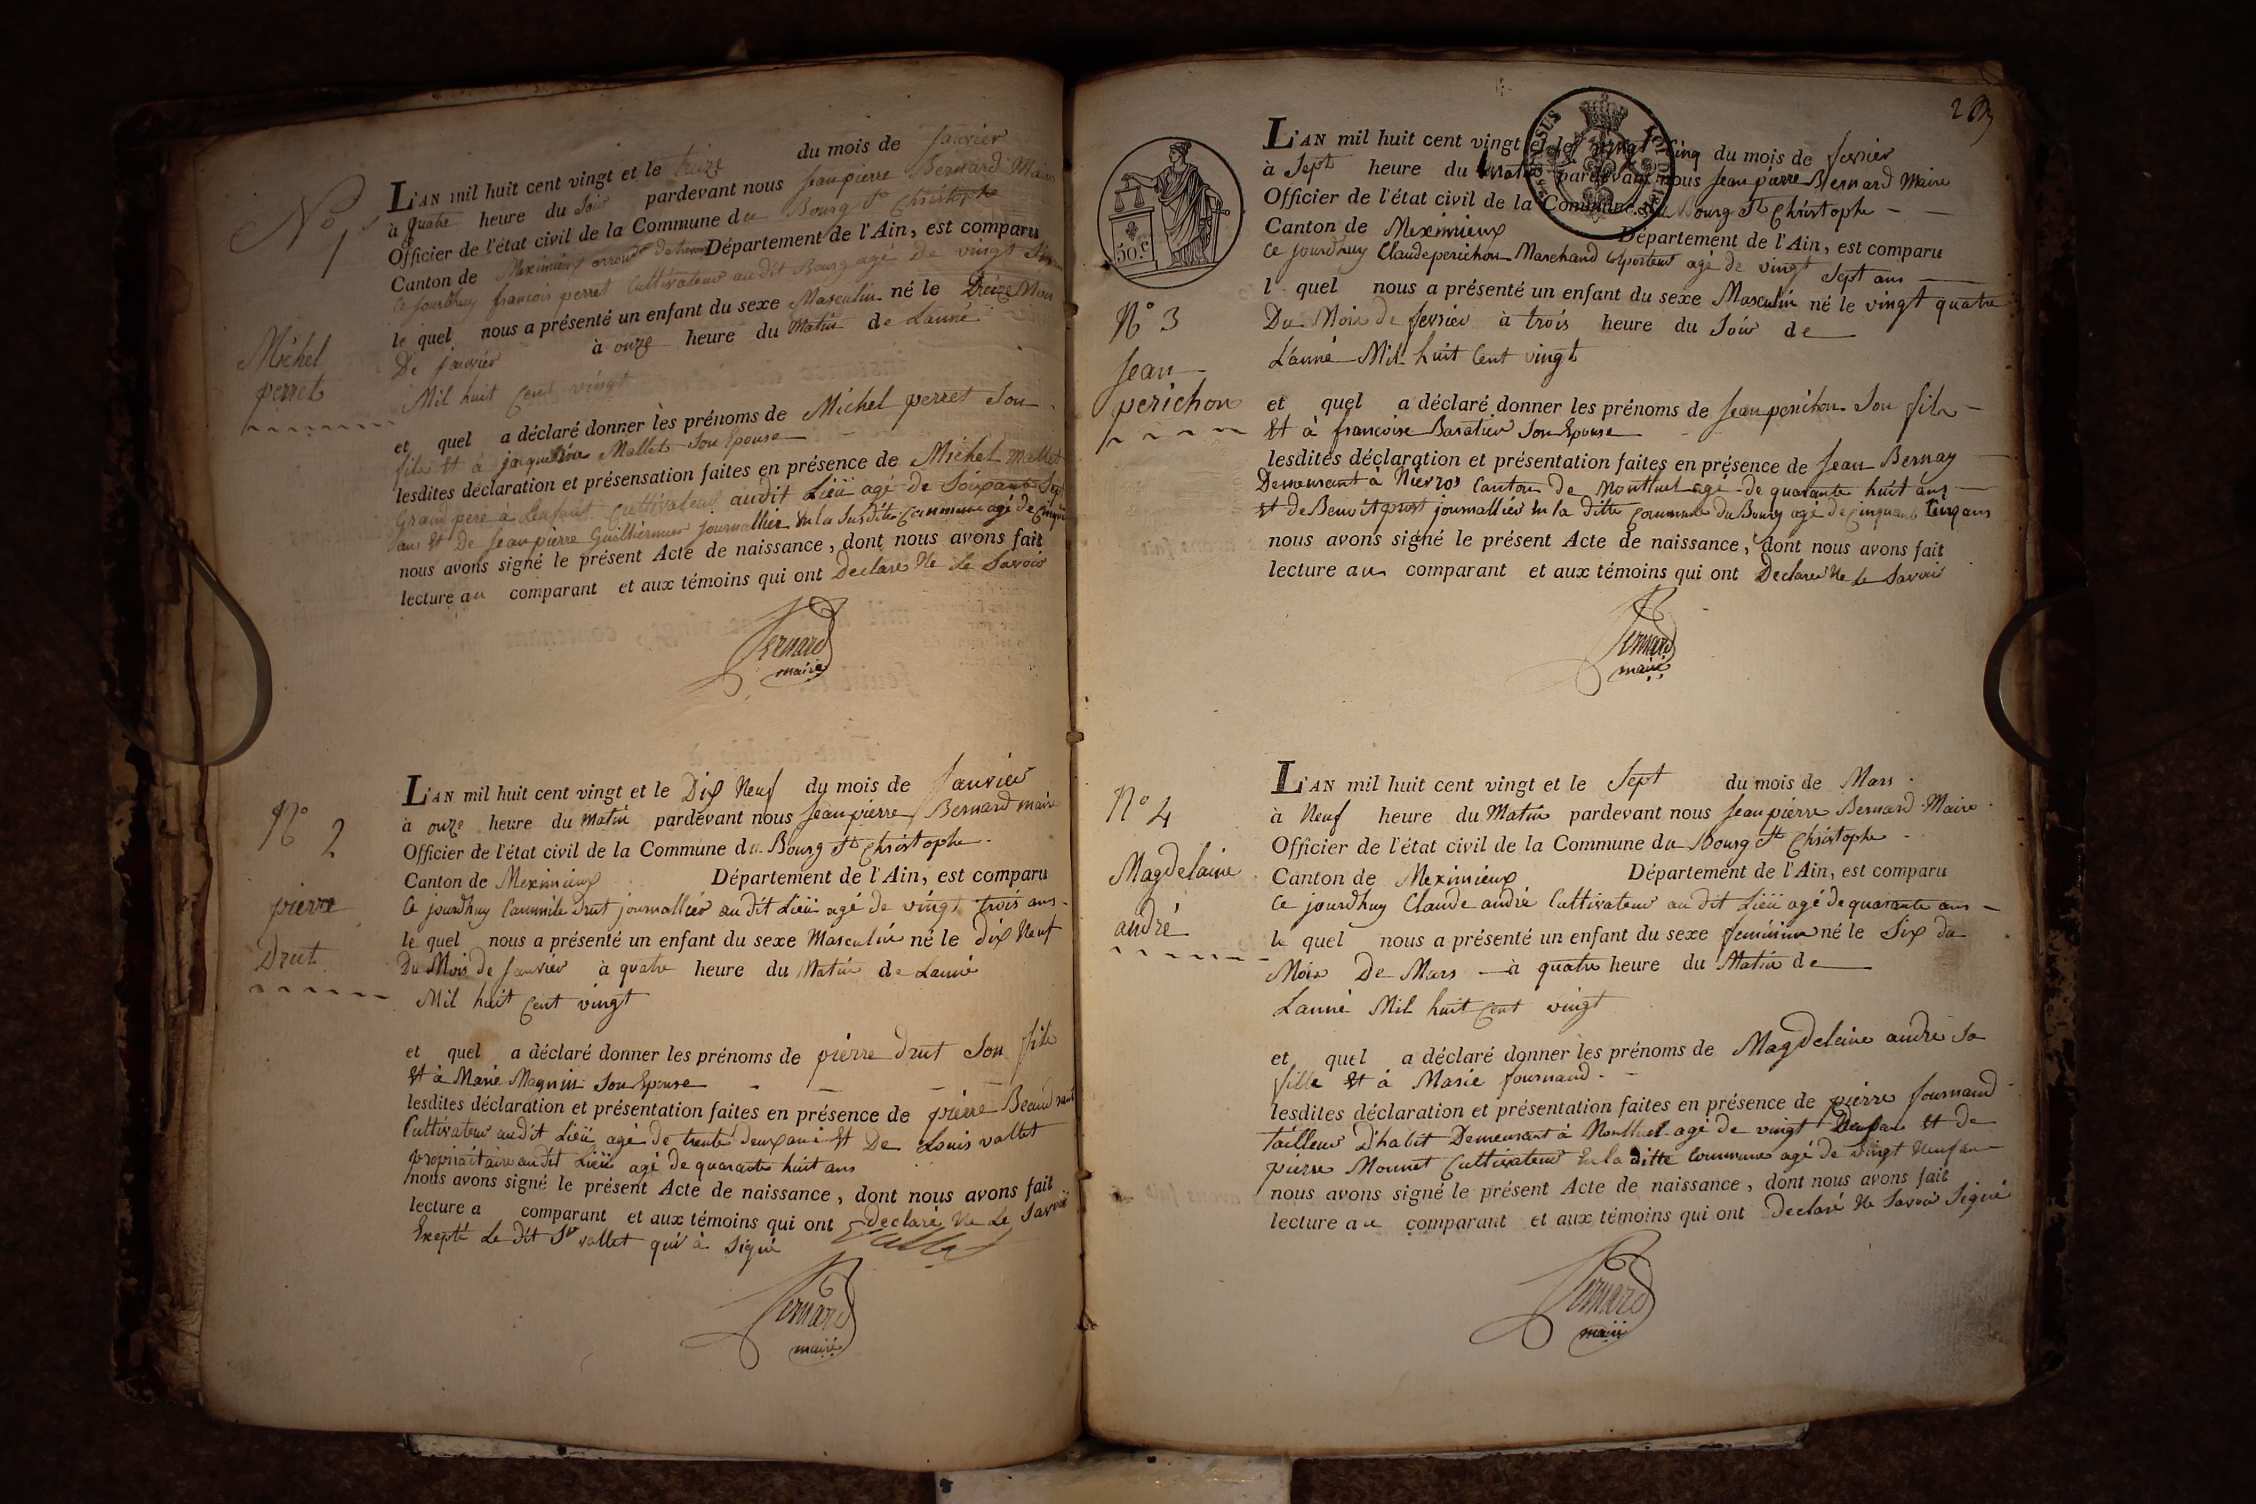 No 1
Michel
perret
L'AN mil huit cent vingt et le treize du mois de Janvier
à quatre heure du Soir pardevant nous Jeanpierre Bernard Maire
Officier de l'état civil de la Commune du Bourg St Christophe
Canton de Meximieux Département de l'Ain, est comparu
Ce jourdhuy francois perret Cultivateur audit Bourg agé de vingt
le quel nous a présenté un enfant du sexe Masculin né le Treize Mois
De Janvier à onze heure du Matin de Lanné
Mil huit Cent vingt
et quel a déclaré donner les prénoms de Michel perret Son
fils Et à jacqueline Mallet Son Epouse
lesdites déclaration et présensation faites en présence de Michel Mallet
Grand pere à Lenfant Cultivateur audit Lieü agé de Soixante Sept
ans Et De Jeanpierre Guilhermin journallier En la Susdite Commune agé de
nous avons signé le présent Acte de naissance, dont nous avons fait
lecture au comparant et aux témoins qui ont Declaré Ne Le Savoir
Bernard
maire
No 2
pierre
Drut
L'AN mil huit cent vingt et le Dix Neuf du mois de Janvier
à onze heure du Matin pardevant nous Jeanpierre Bernard maire
Officier de l'état civil de la Commune du Bourg St Christophe
Canton de Meximieux Département de l'Ain, est comparu
Ce jourdhuy Cammile Drut journallier au dit Lieü agé de vingt trois ans
le quel nous a présenté un enfant du sexe Masculin né le dix Neuf
Du Mois de Janvier à quatre heure du Matin de Lanné
Mil huit Cent vingt
et quel a déclaré donner les prénoms de pierre Drut Son fils
Et à Marie Magnin Son Epouse
lesdites déclaration et présentation faites en présence de pierre
Cultivateur audit Lieü agé de trente deux ans Et De Louis vallet
propriaitaire audit Lieü agé de quarante huit ans
nous avons signé le présent Acte de naissance, dont nous avons fait
lecture a comparant et aux témoins qui ont declaré Ne Le Savoir
Exepté Le dit Sr vallet qui à Signé Vallet
Bernard
maire
2
50.c
No 3
Jean
perichon
L'AN mil huit cent vingt et le vingt Cinq du mois de fevrier
à Sept heure du Matin pardevant nous Jeanpierre Bernard Maire
Officier de l'état civil de la Commune du Bourg St Christophe
Canton de Meximieux Département de l'Ain, est comparu
Ce jourdhuy Claudeperichon Marchand Coporteur agé de vingt Sept ans
l quel nous a présenté un enfant du sexe Masculin né le vingt quatre
Du Mois de fevrier à trois heure du Soir de
Lanné Mil huit Cent vingt
et quel a déclaré donner les prénoms de Jeanperichon Son fils
Et à francoise Baratier Son Epouse
lesdites déclaration et présentation faites en présence de Jean Bernay
Demeurant à Nievroz Canton de Montluel agé de quarante huit ans
Et de Benoit prost journallier En la ditte Commune du Bourg agé de Cinquante Cinq ans
nous avons signé le présent Acte de naissance, dont nous avons fait
lecture au comparant et aux témoins qui ont Declaré Ne Le Savoir
Bernard
maire
No 4
Magdelaine
andré
L'AN mil huit cent vingt et le Sept du mois de Mars
à Neuf heure du Matin pardevant nous Jeanpierre Bernard Maire
Officier de l'état civil de la Commune du Bourg St Christophe
Canton de Meximieux Département de l'Ain, est comparu
Ce jourdhuy Claude andré Cultivateur au dit Lieü agé de quarante ans
le quel nous a présenté un enfant du sexe feminin né le Six du
Mois De Mars à quatre heure du Matin de
Lanné Mil huit Cent vingt
et quel a déclaré donner les prénoms de Magdelaine andré Sa
fille Et à Marie fournand
lesdites déclaration et présentation faites en présence de pierre fournand
tailleur D'habit Demeurant à Montluel agé de vingt Et de
pierre Monnet Cultivateur En la ditte Commune agé de vingt Neuf an
nous avons signé le présent Acte de naissance, dont nous avons fait
lecture au comparant et aux témoins qui ont Declaré Ne Savoir Signé
Bernard
maire